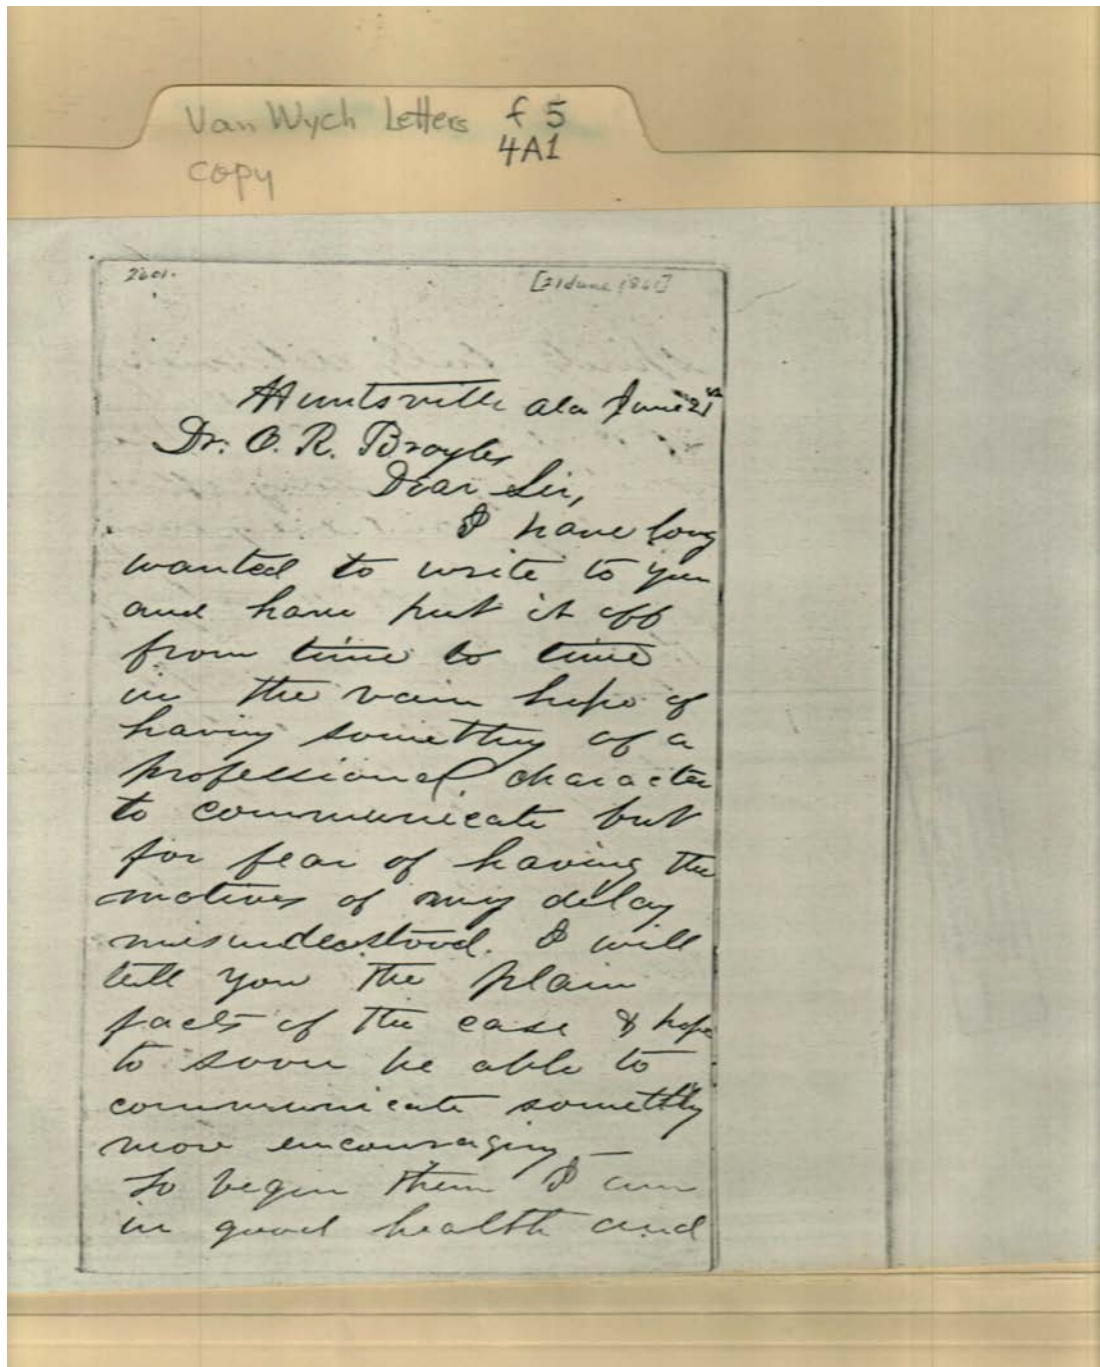 Van Wych Letters f 5
4A1
copy
2601.
[21 June 1861]
Huntsville Ala June 21st
Dr. O. R. Broyles
Dear Sir,
I have long
wanted to write to you
and have put it off
from time to time
in the vain hope of
having something of a
professional character
to communicate but
for fear of having the
motives of my delay
misunderstood. I will
tell you the plain
facts of the case & hope
to soon be able to
communicate something
more encouraging –
To begin them I am
in good health and